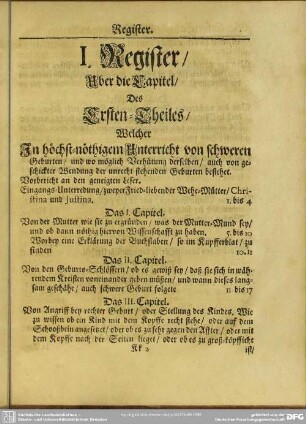 Register.
I. Register/
Uber die Capitel/
Des
Ersten-Theiles/
Welcher
In höchst-nöthigem Unterricht von schweren
Geburten/ und wo möglich Verhütung derselben/ auch von ge-
schickter Wendung der unrecht stehenden Geburten bestehet.
Vorbericht an den geneigten Leser.
Eingangs-Unterredung/ zweyer Fried-liebender Wehe-Mütter/ Chri-
stina und Justina. 1. bis 4
Das I. Capitel.
Von der Mutter wie sie zu ergründen/ was der Mutter-Mund sey/
und ob dann nöthig hiervon Wissenschafft zu haben. 5. bis 10
Worbey eine Erklärung der Buchstaben/ so im Kupfferblat/ zu
finden 10.11
Das II. Capitel.
Von den Geburts-Schlössern/ ob es gewiß sey/ daß sie sich in wäh-
rendem Kreisten voneinander geben müssen/ und wann dieses lang-
sam geschähe/ auch schwere Geburt folgete 11. bis 17
Das III. Capitel.
Von Angriff bey rechter Geburt/ oder Stellung des Kindes. Wie
zu wissen ob ein Kind mit dem Kopffe recht stehe/ oder auf dem
Schooßbein angesetzet/ oder ob es zu sehr gegen den Affter/ oder mit
dem Kopffe nach der Seiten lieget/ oder ob es zu groß-köpfficht
Kk 2 ist/